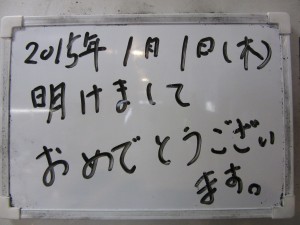 2015年1月1日(木)
明けまして
おめでとうござい
ます。